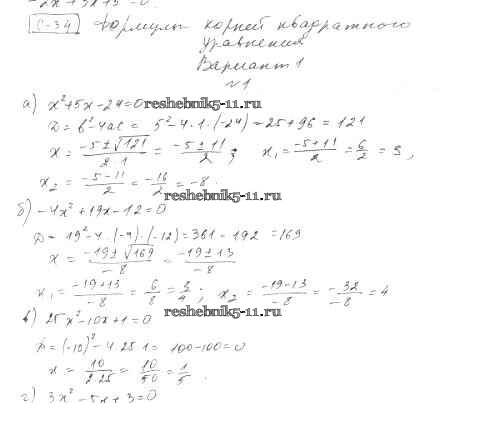 -2x²+3x+5=0
С-34 Формулы корней квадратного
уравнения
Вариант 1
№1
а) x²+5x-24=0 reshebnik5-11.ru
D=b²-4ac= 5²-4·1·(-24)=25+96=121
x= (-5±√121)/(2·1) = (-5±11)/2; x₁= (-5+11)/2 = 6/2 = 3,
x₂= (-5-11)/2 = -16/2 = -8.
reshebnik5-11.ru
б) -4x²+19x-12=0
D= 19²-4·(-4)·(-12)=361-192=169
x= (-19±√169)/-8 = (-19±13)/-8
x₁= (-19+13)/-8 = 6/8 = 3/4; x₂= (-19-13)/-8 = -32/-8 = 4
в) 25x²-10x+1=0 reshebnik5-11.ru
D=(-10)²-4·25·1= 100-100=0
x= 10/(2·25) = 10/50 = 1/5.
г) 3x²-5x+3=0